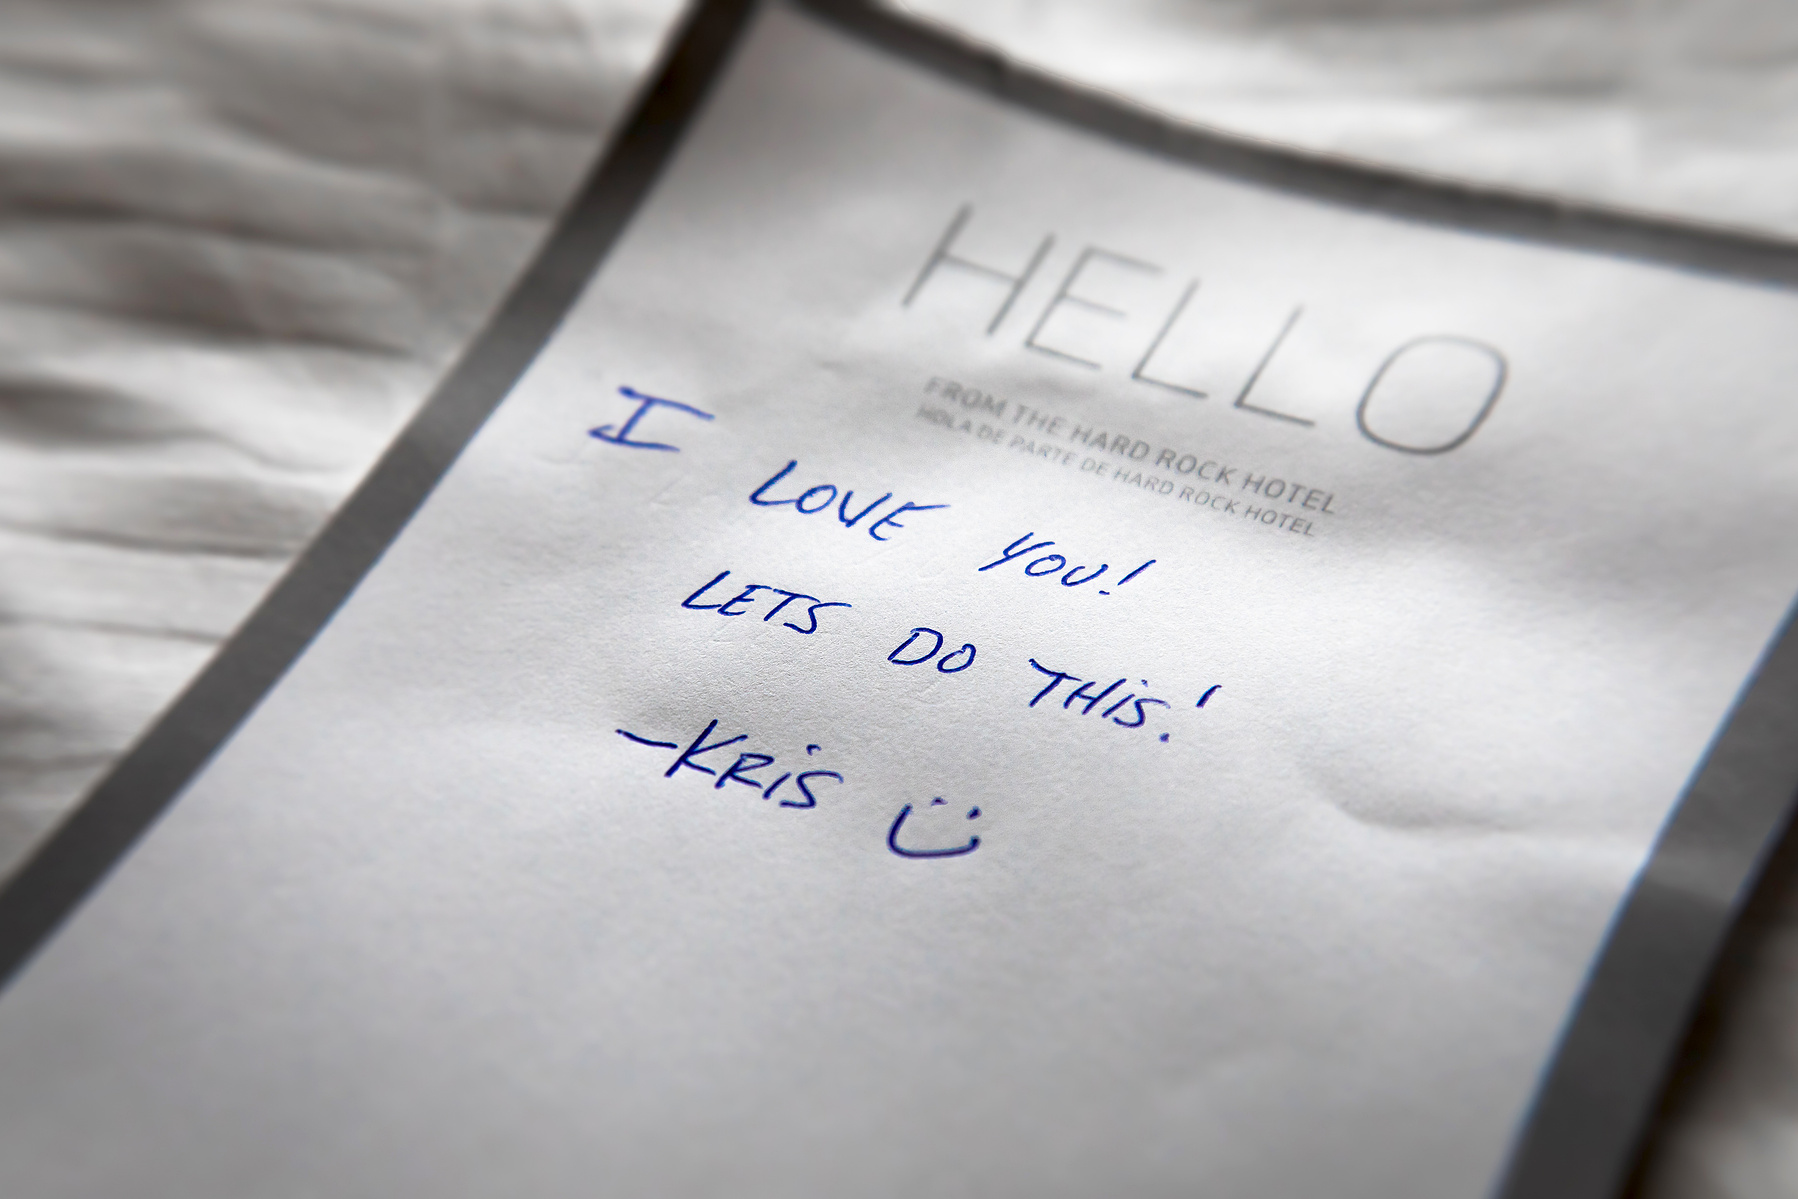 HELLO
FROM THE HARD ROCK HOTEL
HOLA DE PARTE DE HARD ROCK HOTEL
I LOVE YOU!
LETS DO THIS!
-KRiS